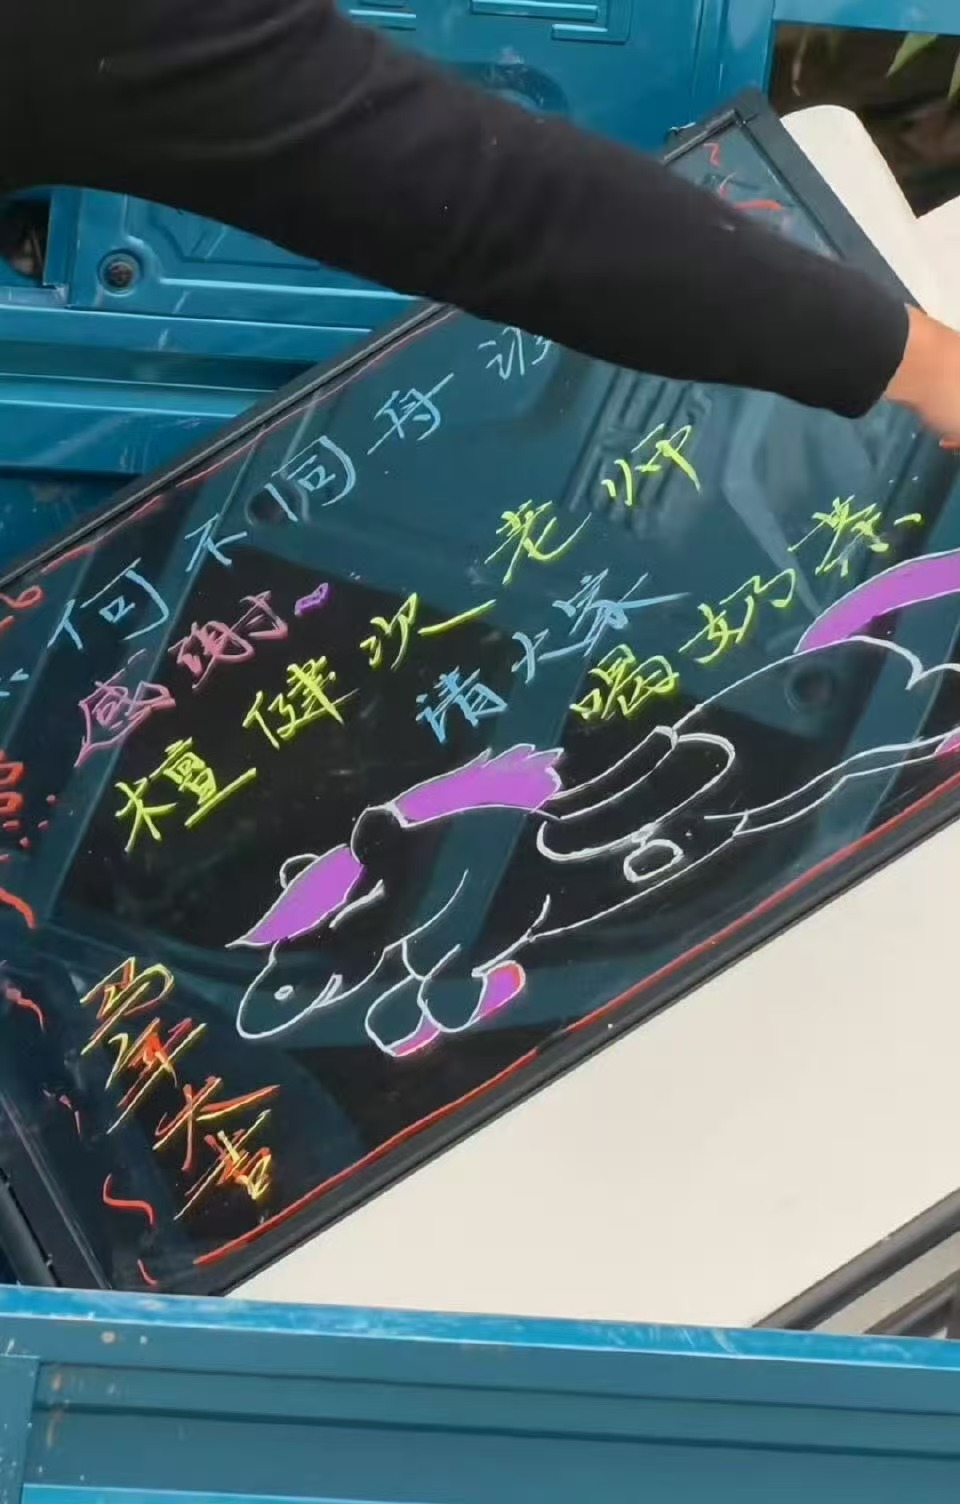 何不同舟渡
感谢~
檀健次一老师
请大家
喝奶茶
马年大吉